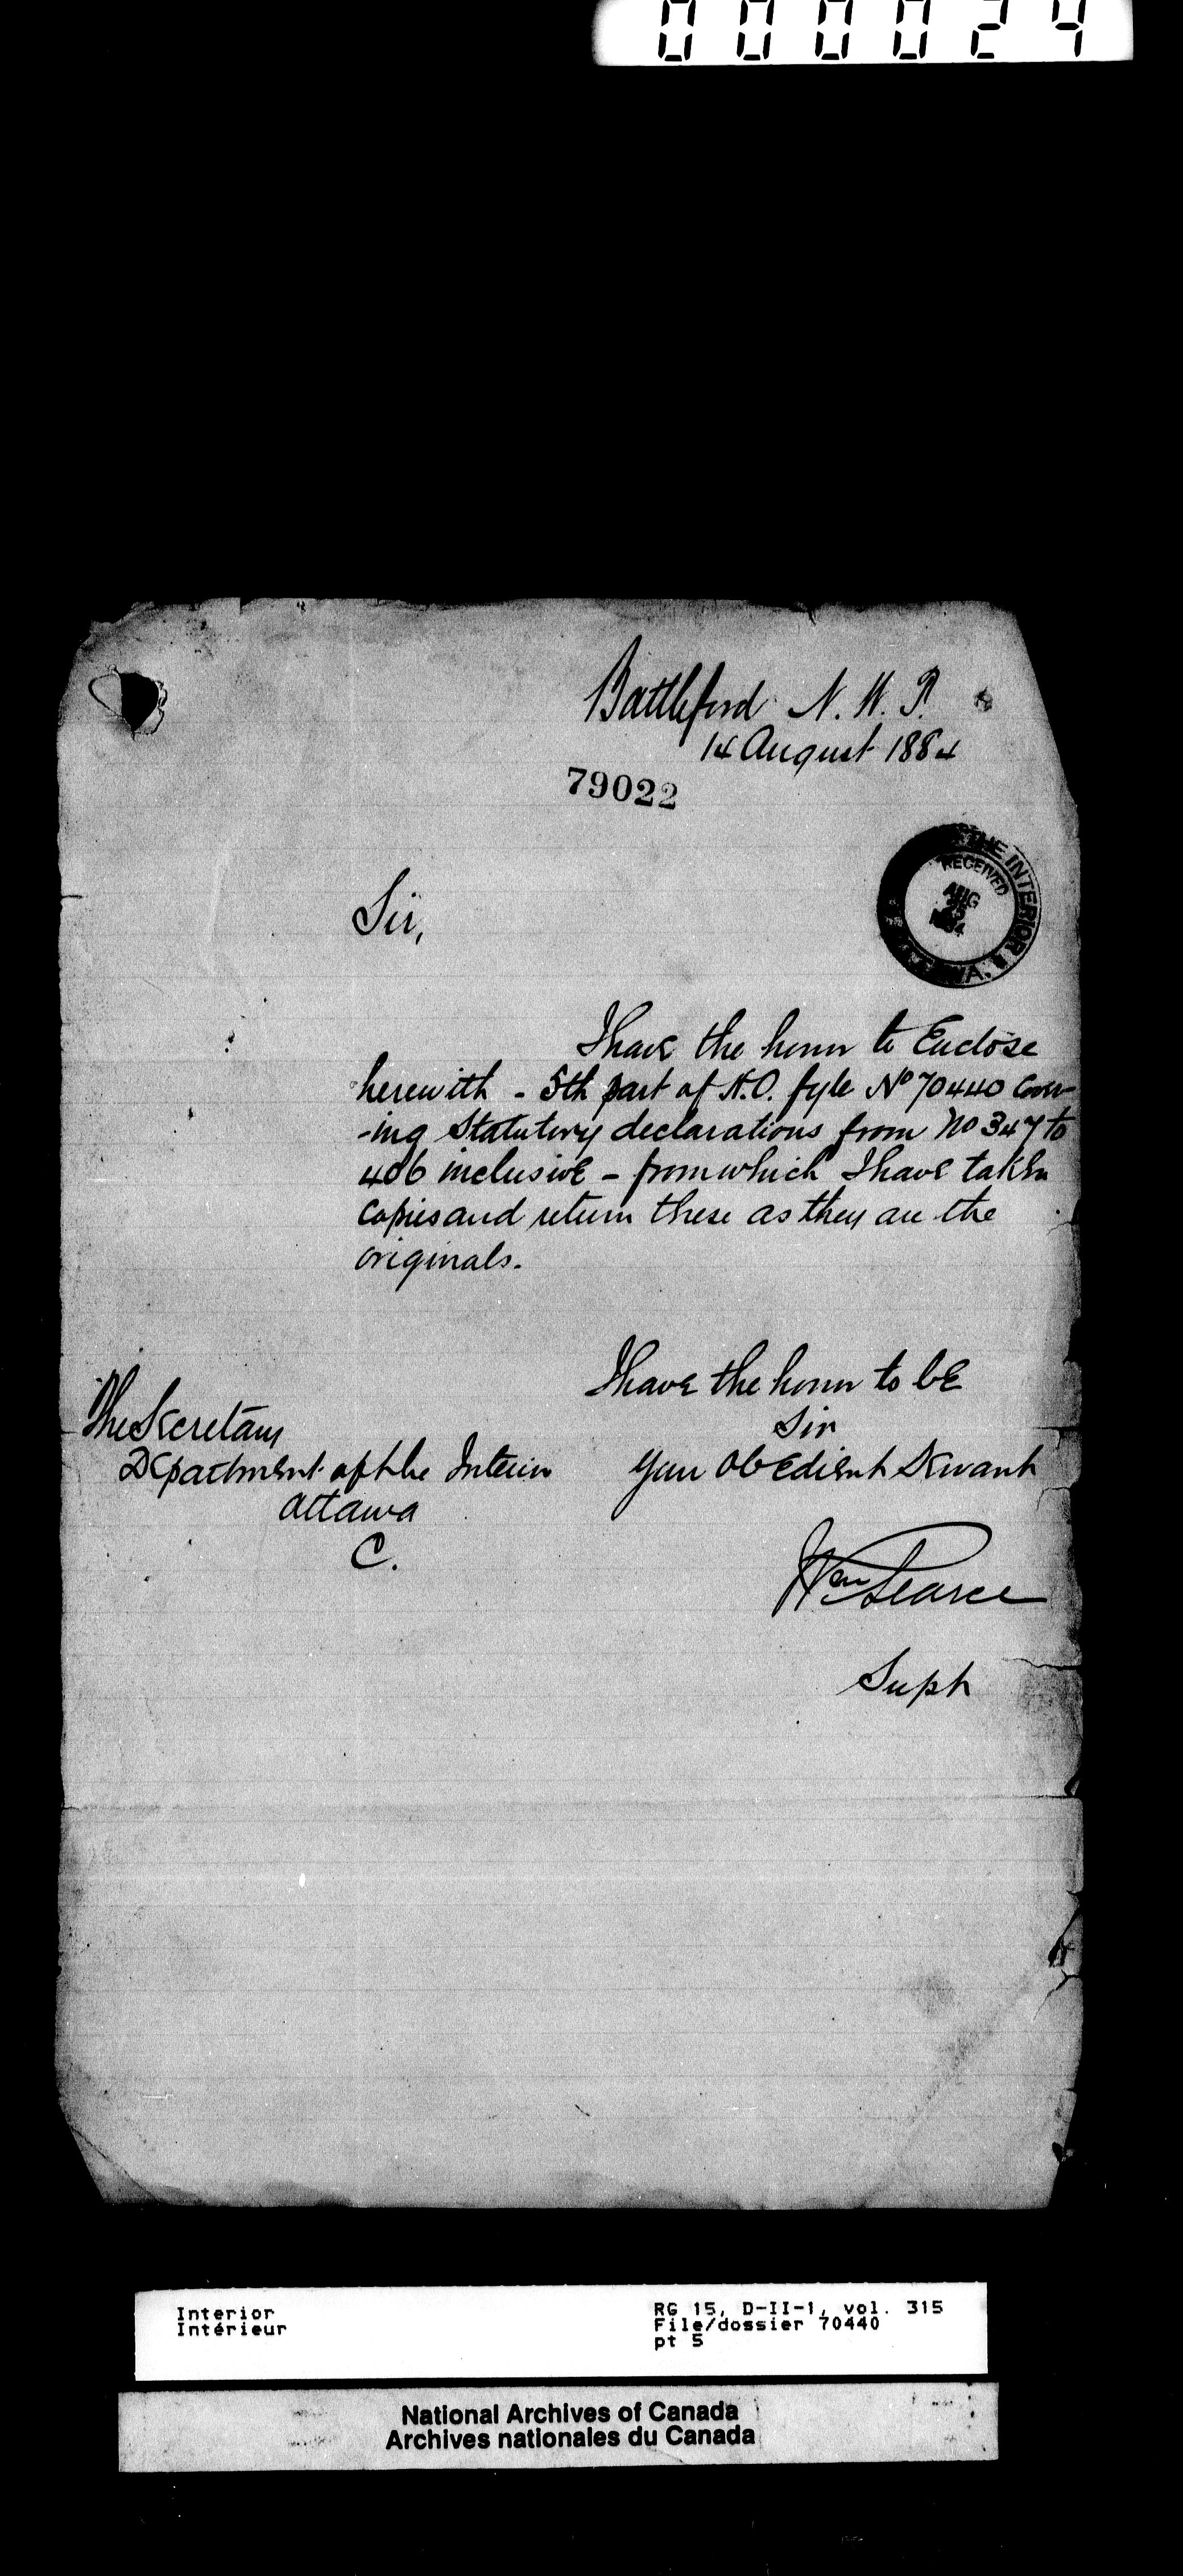 000024
Battleford N. W. T.
14 August 1884
79022
THE INTERIOR
RECEIVED
AUG
Sir,
I have the honor to Enclose
herewith - 5th part of H.O. fyle No 70440 Cover-
-ing Statutory declarations from No 347 to
406 inclusive - from which I have taken
Copies and return these as they are the
originals.
I have the honor to be
Sir
Your Obedient Servant
The Secretary
Department of the Interior
Ottawa
C.
Wm Pearce
Supt
Interior
Intérieur
RG 15, D-II-1, vol. 315
File/dossier 70440
pt 5
National Archives of Canada
Archives nationales du Canada